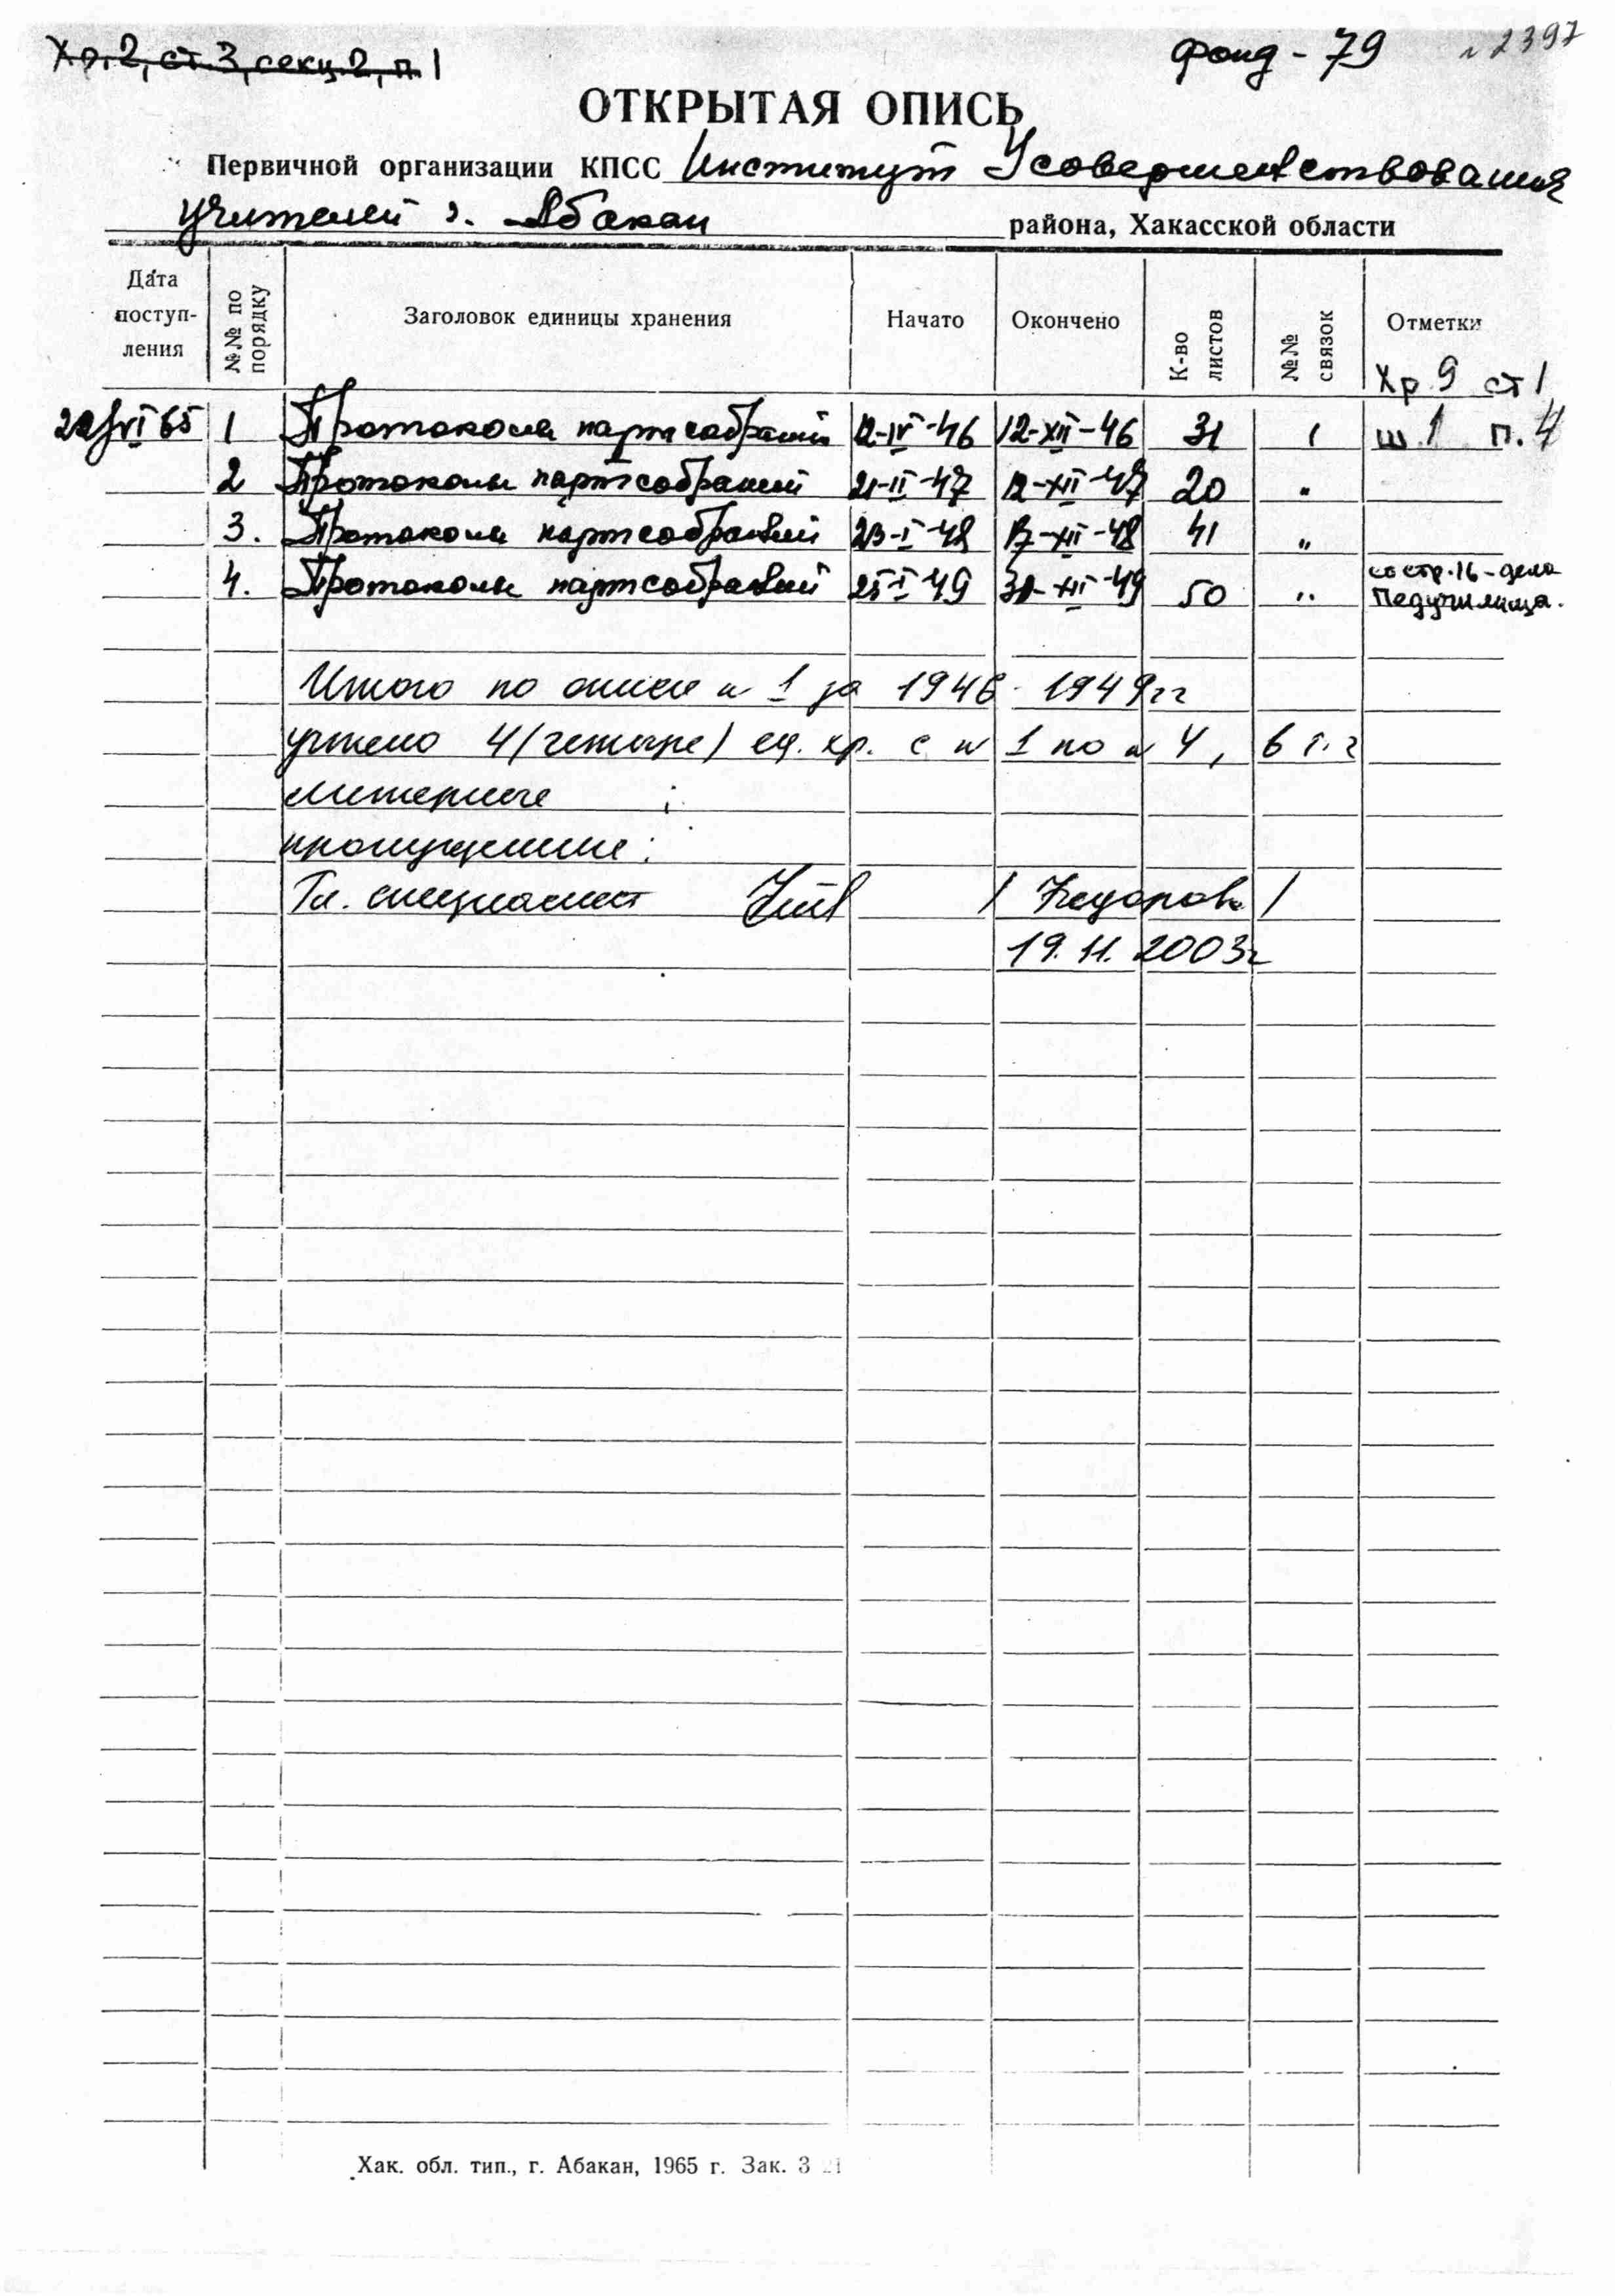 Хр. 2, ст. 3, секц. 2, п. 1
Фонд - 79
2397
ОТКРЫТАЯ ОПИСЬ
Первичной организации КПСС Институт Усовершенствования
учителей г. Абакан района, Хакасской области
Дата поступ-ления №№ по порядку Заголовок единицы хранения Начато Окончено К-во листов №№ связок Отметки
Хр 9 ст 1
22/VI 65 1 Протоколы партсобраний 12-IV-46 12-XII-46 31 1 ш. 1 п. 4
2 Протоколы партсобраний 21-II-47 12-XII-47 20 "
3. Протоколы партсобраний 23-I-48 17-XII-48 41 "
4. Протоколы партсобраний 25-I-49 30-XII-49 50 " со стр. 16 - дела
Педучилища.
Итого по описи н 1 за 1946 - 1949 гг
учтено 4 (четыре) ед. хр. с н 1 по н 4, в т. ч
литерные :
пропущенные :
Гл. специалист
19. 11. 2003г
Хак. обл. тип., г. Абакан, 1965 г. Зак. 3